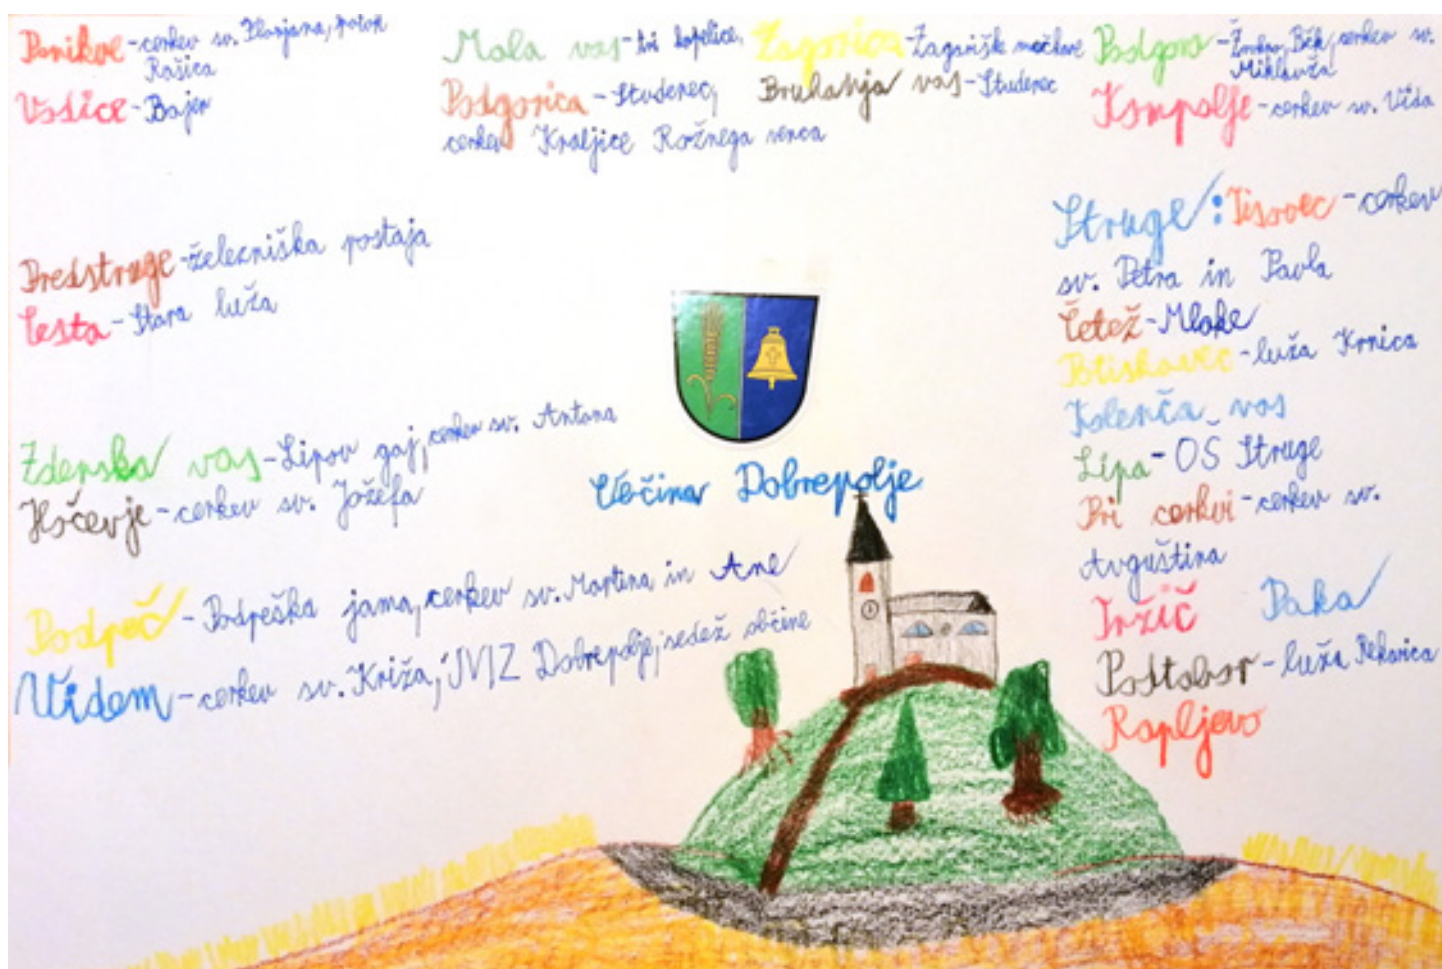 Ponikve - cerkev sv. Florjana, potok
Rašica
Vodice - Bajer
Mala vas - tri kapelice,
Podgorica - Studenec,
cerkev Kraljice Rožnega venca
Zagorica - Zagoriške močkve
Bruhanja vas - Studenec
Podgora - Žerkov, Bčk, cerkev sv.
Miklavža
Kompolje - cerkev sv. Vida
Predstruge - železniška postaja
Cesta - Stara luža
Zdenska vas - Lipov gaj, cerkev sv. Antona
Hočevje - cerkev sv. Jožefa
Podpeč - Podpeška jama, cerkev sv. Martina in Ane
Videm - cerkev sv. Križa, JVIZ Dobrepolje, sedež občine
Občina Dobrepolje
Struge: Tisovec - cerkev
sv. Petra in Pavla
Četež - Mlake
Potiskavec - luža Krnica
Kolenča vas
Lipa - OŠ Struge
Pri cerkvi - cerkev sv.
Avguština
Tržič Paka
Podtabor - luža Rekarica
Rapljevo